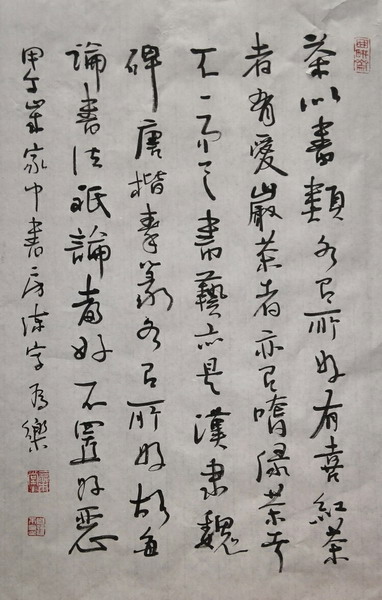 茶以書類各有所好有喜紅茶
者有愛巖茶者亦有嗜綠茶者
不一而足書藝亦是漢隸魏
碑唐楷秦篆各有所好故無
論書法祇論喜好不置好惡
甲午歲家中書房陳字為樂